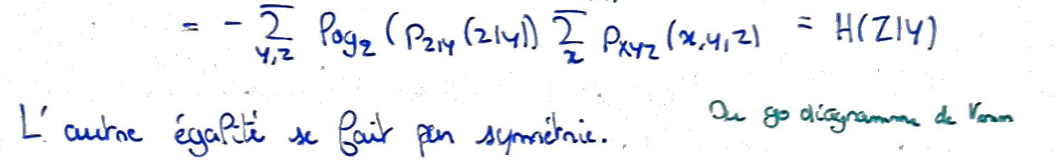 = - \sum_{y,z} log_2 (P_{Z|Y}(z|y)) \sum_x P_{XYZ}(x,y,z) = H(Z|Y)
L'autre égalité se fait par symétrie. Ou go diagramme de Venn